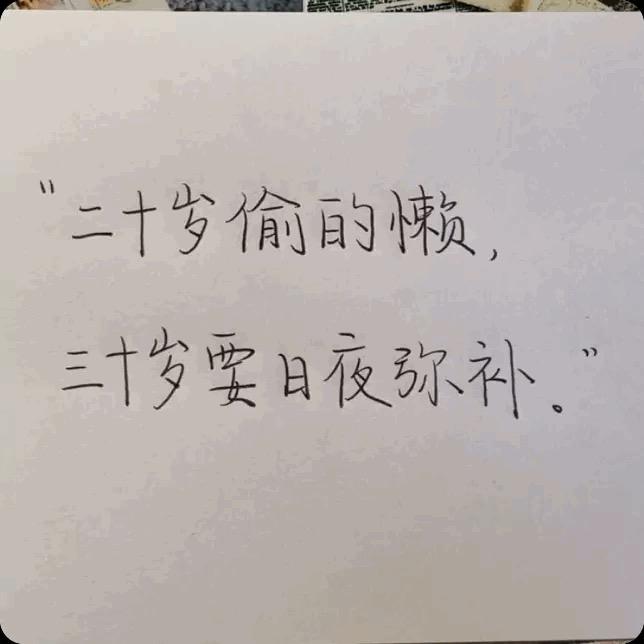 "二十岁偷的懒,
三十岁要日夜弥补。"